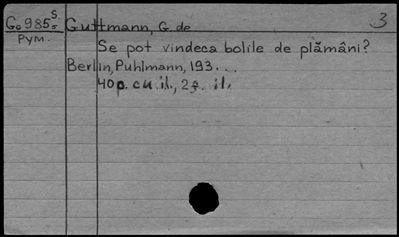 3
G. 985 S. Guttmann, G. de
Pym.
Se pot vindeca bolile de plămâni?
Berlin, Puhlmann, 193...
40p. cu il., 2 f. il.